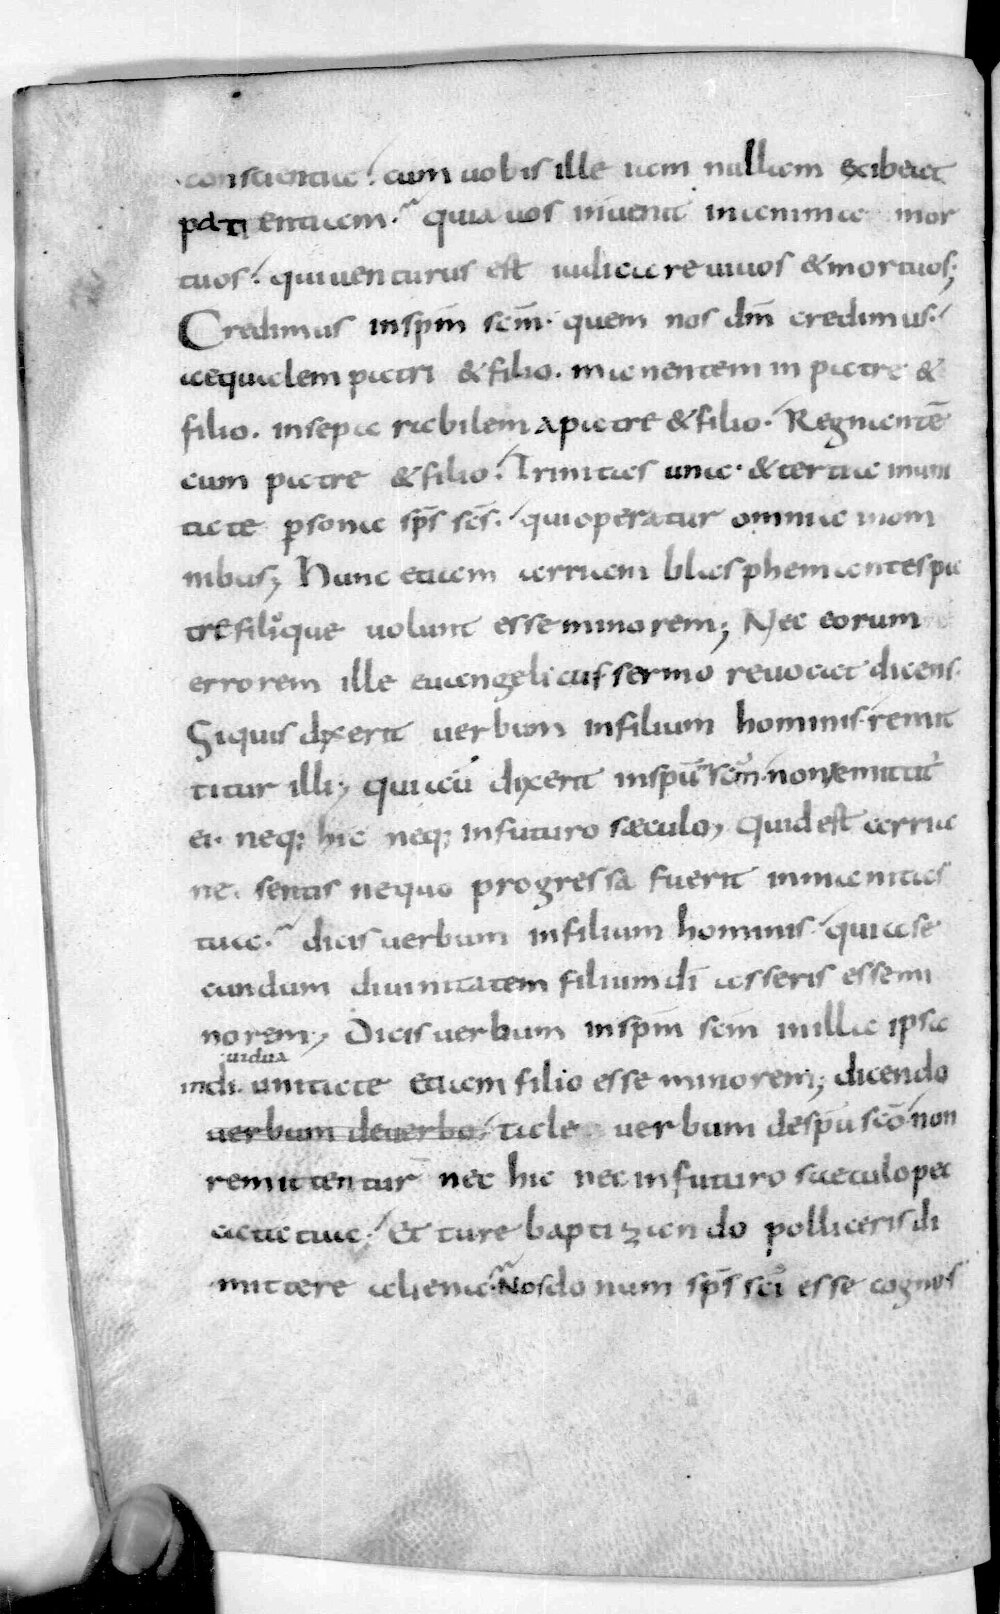 conscientia. cum uobis ille iam nullam exibeat
patientiam. quia uos inuenit in anima mor
tuos. qui uenturus est iudicare uiuos & mortuos;
Credimus in spm̄ scm̄. quem nos dm̄ credimus.
aequalem patri & filio. manentem in patre &
filio. inseparabilem a patre & filio. Regnantē
cum patre & filio. Trinitas una. & tertia in uni
tate psona sp̄s sc̄s. qui operatur omnia in om
nibus; Hunc etiam arriani blasphemantes pa
tre filioque uolunt esse minorem; Nec eorum
errorem ille euangelicus sermo reuocat dicens.
Siquis dixerit uerbum in filium hominis. remit
titur illi; qui aū dixerit in spm̄ scm̄. non remittitur
ei. neq; hic neq; in futuro sæculo; Quid est arria
ne. sentis nequo progressa fuerit inmanitas
tua. dicis uerbum in filium hominis. qui a se
cundum diuinitatem filium dī asseris esse mi
norem; Dicis uerbum in spm̄ scm̄ in illa ipsa
uidua
indi. unitate etiam filio esse minorem; dicendo
uerbum de uerbo. tale uerbum de spū scō non
remittentur nec hic nec in futuro saeculo pec
cata tua. Et tu rebaptizando polliceris di
mittere aliena. Nos donum sp̄s sci esse cognos